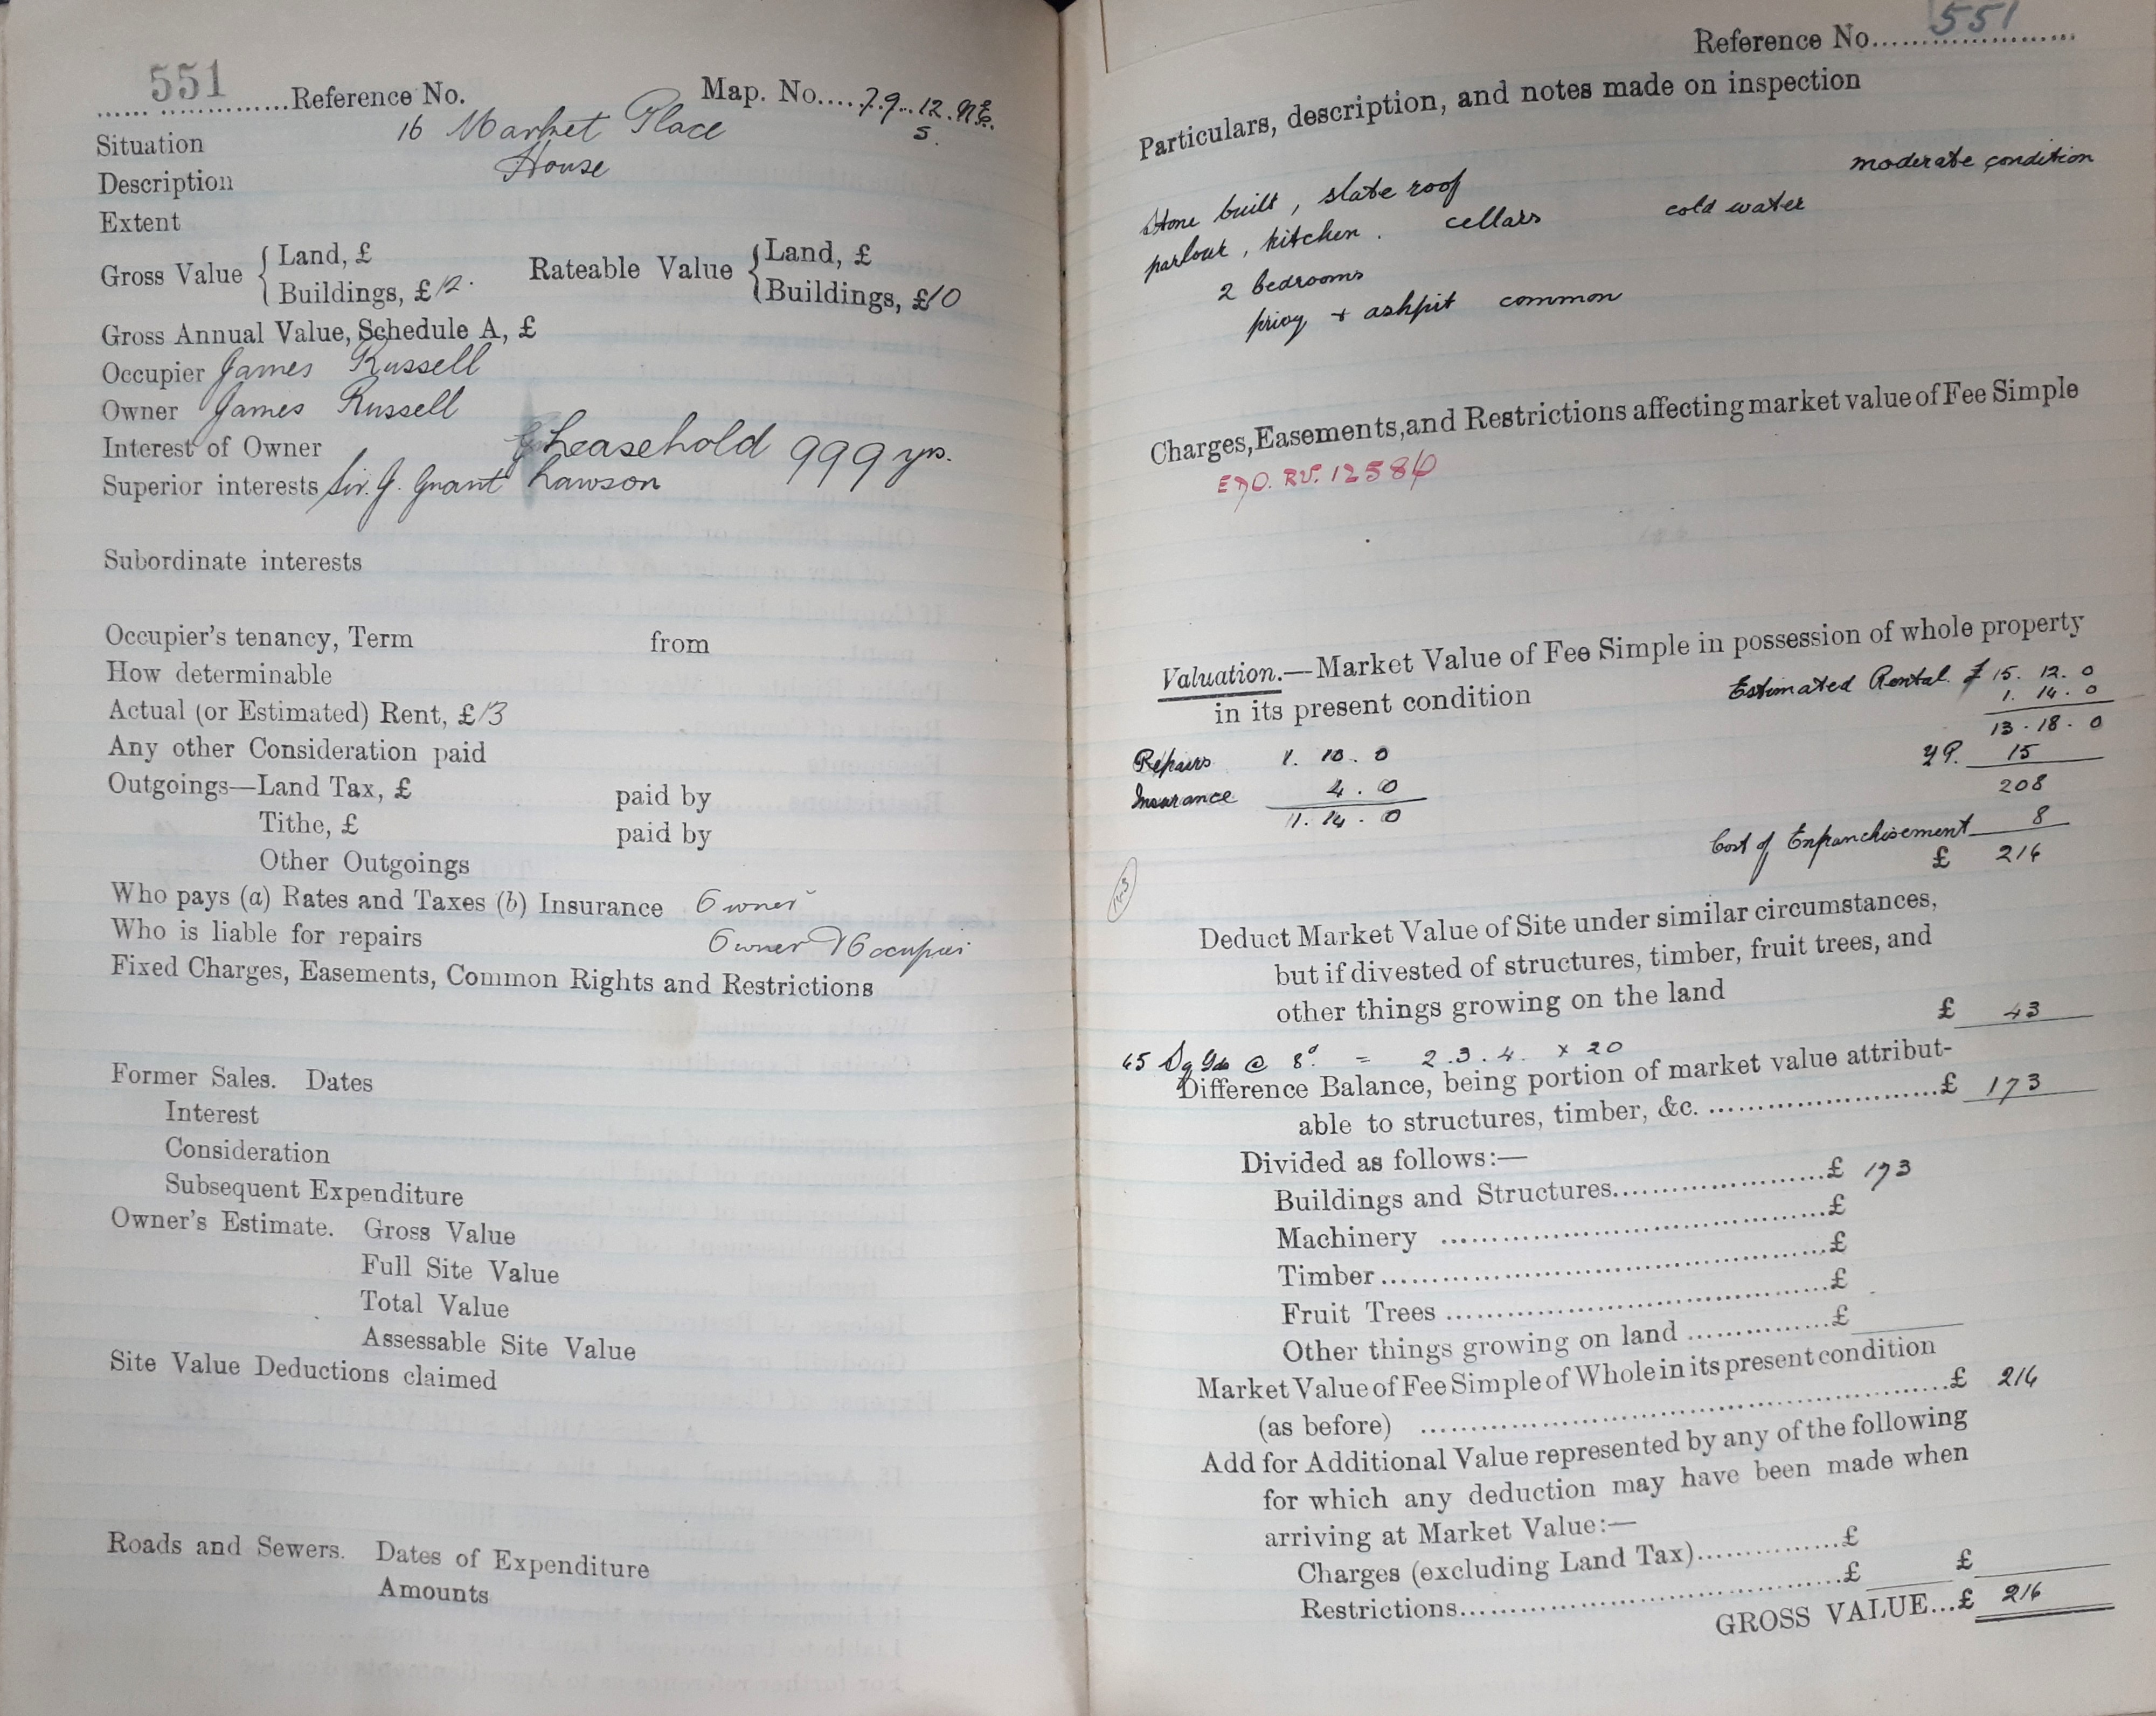 551 Reference No. Map. No. 79.12.N.E.
S.
Situation 16 Market Place
Description House
Extent
Gross Value { Land, £ Rateable Value { Land, £
Buildings, £12. Buildings, £10
Gross Annual Value, Schedule A, £
Occupier James Russell
Owner James Russell
Interest of Owner Leasehold 999 yrs.
Superior interests Sir. J. Grant Lawson
Subordinate interests
Occupier's tenancy, Term from
How determinable
Actual (or Estimated) Rent, £13
Any other Consideration paid
Outgoings—Land Tax, £ paid by
Tithe, £ paid by
Other Outgoings
Who pays (a) Rates and Taxes (b) Insurance Owner
Who is liable for repairs Owner & Occupier
Fixed Charges, Easements, Common Rights and Restrictions
Former Sales. Dates
Interest
Consideration
Subsequent Expenditure
Owner's Estimate. Gross Value
Full Site Value
Total Value
Assessable Site Value
Site Value Deductions claimed
Roads and Sewers. Dates of Expenditure
Amounts
Reference No. 551
Particulars, description, and notes made on inspection
moderate condition
Stone built, slate roof
parlour, kitchen. cellars cold water
2 bedrooms
privy + ashpit common
Charges, Easements, and Restrictions affecting market value of Fee Simple
Valuation.—Market Value of Fee Simple in possession of whole property
in its present condition Estimated Rental £15. 12. 0
1. 14. 0
13. 18. 0
Repairs 1. 10. 0 YP. 15
Insurance 4. 0 208
1. 14. 0
Cost of Enfranchisement 8
£ 216
Deduct Market Value of Site under similar circumstances,
but if divested of structures, timber, fruit trees, and
other things growing on the land £ 43
65 Sq Yds @ 8d = 2. 3. 4. x 20
Difference Balance, being portion of market value attribut-
able to structures, timber, &c. £ 173
Divided as follows:—
Buildings and Structures £ 173
Machinery £
Timber £
Fruit Trees £
Other things growing on land £
Market Value of Fee Simple of Whole in its present condition
(as before) £ 216
Add for Additional Value represented by any of the following
for which any deduction may have been made when
arriving at Market Value:—
Charges (excluding Land Tax) £
Restrictions £ £
GROSS VALUE...£ 216